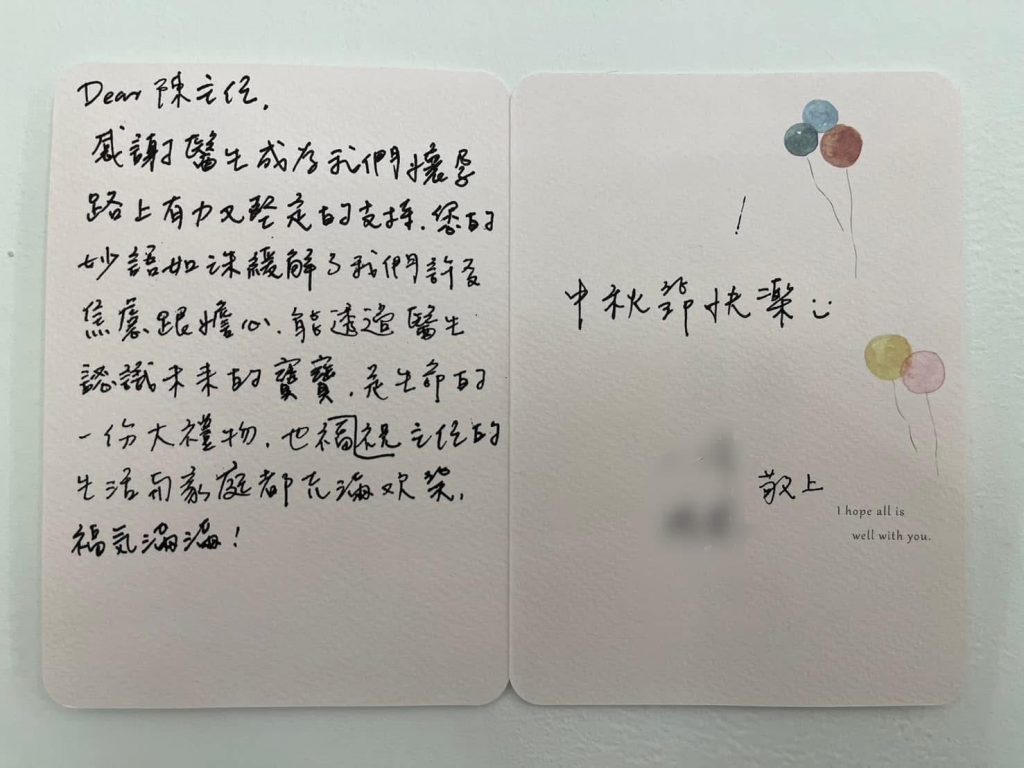 Dear 陳主任,
感謝醫生成為我們懷孕
路上有力又堅定的支持.您的
妙語如珠緩解了我們許多
焦慮跟擔心.能透過醫生
認識未來的寶寶.是生命的
一份大禮物.也福祝主任的
生活與家庭都充滿歡笑,
福氣滿滿!
!
中秋節快樂
敬上
I hope all is
well with you.